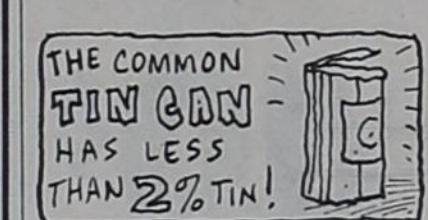 THE COMMON
TIN CAN
HAS LESS
THAN 2% TIN!
C